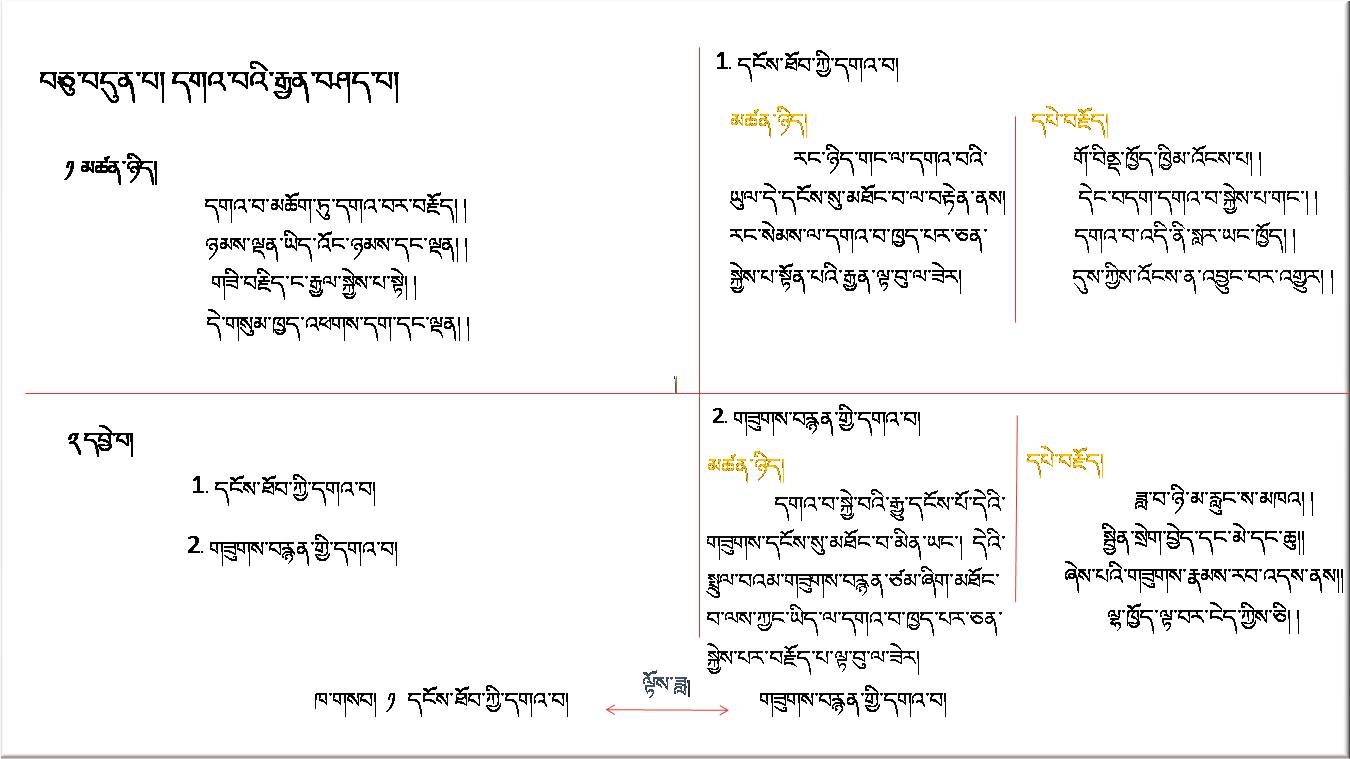 བཅུ་བདུན་པ། དགའ་བའི་རྒྱན་བཤད་པ།
༡ མཚན་ཉིད།
དགའ་བ་མཆོག་ཏུ་དགའ་བར་བརྗོད། །
ཉམས་ལྡན་ཡིད་འོང་ཉམས་དང་ལྡན། །
གཟི་བརྗིད་ང་རྒྱལ་སྐྱེས་པ་སྟེ། །
དེ་གསུམ་ཁྱད་འཕགས་དག་དང་ལྡན། །
1. དངོས་ཐོབ་ཀྱི་དགའ་བ།
མཚན་ཉིད།
རང་ཉིད་གང་ལ་དགའ་བའི་
ཡུལ་དེ་དངོས་སུ་མཐོང་བ་ལ་བརྟེན་ནས།
རང་སེམས་ལ་དགའ་བ་ཁྱད་པར་ཅན་
སྐྱེས་པ་སྟོན་པའི་རྒྱན་ལྟ་བུ་ལ་ཟེར།
དཔེ་བརྗོད།
གོ་བིནྡ་ཁྱོད་ཁྱིམ་འོངས་པ། །
དེང་བདག་དགའ་བ་སྐྱེས་པ་གང་། །
དགའ་བ་འདི་ནི་སླར་ཡང་ཁྱོད། །
དུས་ཀྱིས་འོངས་ན་འབྱུང་བར་འགྱུར། །
༢ དབྱེ་བ།
1. དངོས་ཐོབ་ཀྱི་དགའ་བ།
2. གཟུགས་བརྙན་གྱི་དགའ་བ།
2. གཟུགས་བརྙན་གྱི་དགའ་བ།
མཚན་ཉིད།
དགའ་བ་སྐྱེ་བའི་རྒྱུ་དངོས་པོ་དེའི་
གཟུགས་དངོས་སུ་མཐོང་བ་མིན་ཡང་། དེའི་
སྤྲུལ་བའམ་གཟུགས་བརྙན་ཙམ་ཞིག་མཐོང་
བ་ལས་ཀྱང་ཡིད་ལ་དགའ་བ་ཁྱད་པར་ཅན་
སྐྱེས་པར་བརྗོད་པ་ལྟ་བུ་ལ་ཟེར།
དཔེ་བརྗོད།
ཟླ་བ་ཉི་མ་རླུང་ས་མཁའ། །
སྦྱིན་སྲེག་བྱེད་དང་མེ་དང་ཆུ།།
ཞེས་པའི་གཟུགས་རྣམས་རབ་འདས་ནས།།
ལྷ་ཁྱོད་ལྟ་བར་ངེད་ཀྱིས་ཅི། །
ཁ་གསབ། ༡ དངོས་ཐོབ་ཀྱི་དགའ་བ།
ལྟོས་ཟླ།
གཟུགས་བརྙན་གྱི་དགའ་བ།